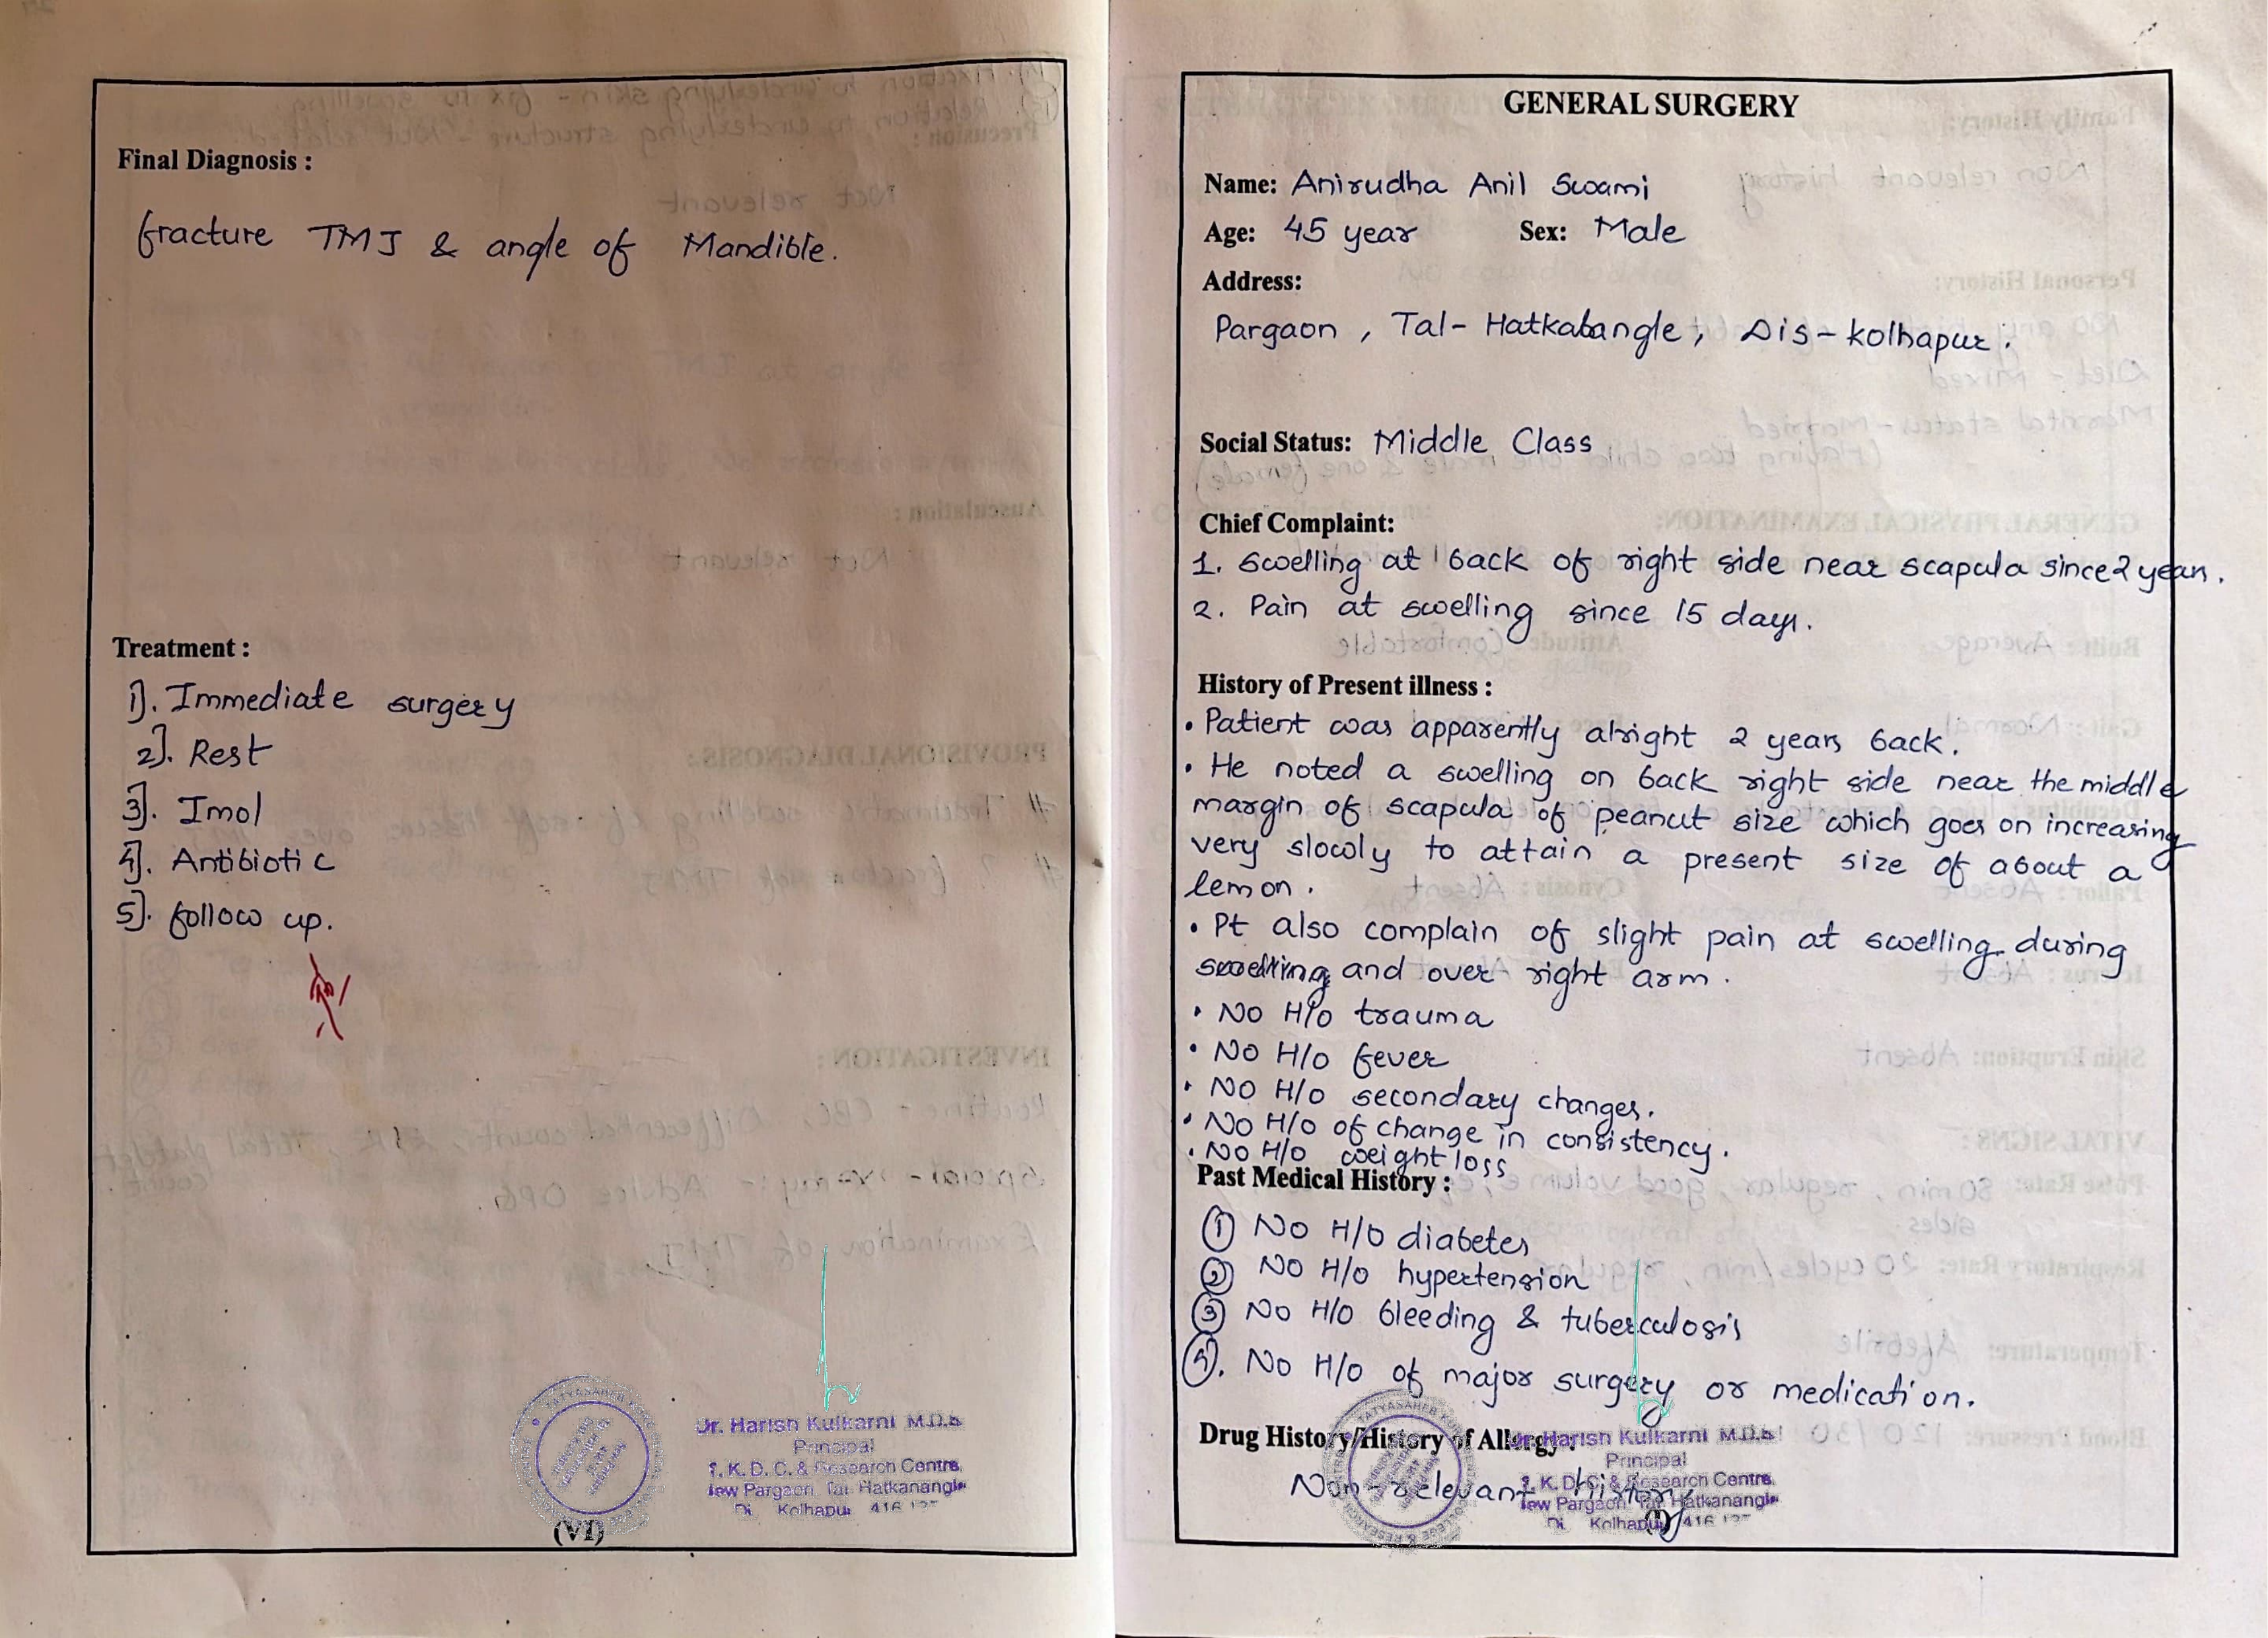 Final Diagnosis :
fracture TMJ & angle of Mandible.
Treatment :
1). Immediate surgery
2). Rest
3). Imol
4). Antibiotic
5). follow up.
Dr. Harish Kulkarni M.D.S
Principal
T. K. D. C. & Research Centre,
New Pargaon, Tal. Hatkanangle
Di. Kolhapur 416
(VI)
GENERAL SURGERY
Name: Anirudha Anil Swami
Age: 45 year Sex: Male
Address:
Pargaon , Tal- Hatkalangle, Dis- kolhapur.
Social Status: Middle Class
Chief Complaint:
1. Swelling at back of right side near scapula since 2 years.
2. Pain at swelling since 15 days.
History of Present illness :
• Patient was apparently alright 2 years back.
• He noted a swelling on back right side near the middle
margin of scapula of peanut size which goes on increasing
very slowly to attain a present size of about a
lemon.
• Pt also complain of slight pain at swelling during
and over right arm.
• No H/o trauma
• No H/o fever
• No H/o secondary changes.
• No H/o of change in consistency.
• No H/o weight loss
Past Medical History :
① No H/o diabetes
② No H/o hypertension
③ No H/o bleeding & tuberculosis
④. No H/o of major surgery or medication.
Drug History/History of Allergy:
Non-relevant history
Dr. Harish Kulkarni M.D.S
Principal
T. K. D. C. & Research Centre,
New Pargaon, Tal. Hatkanangle
Di. Kolhapur 416
(I)